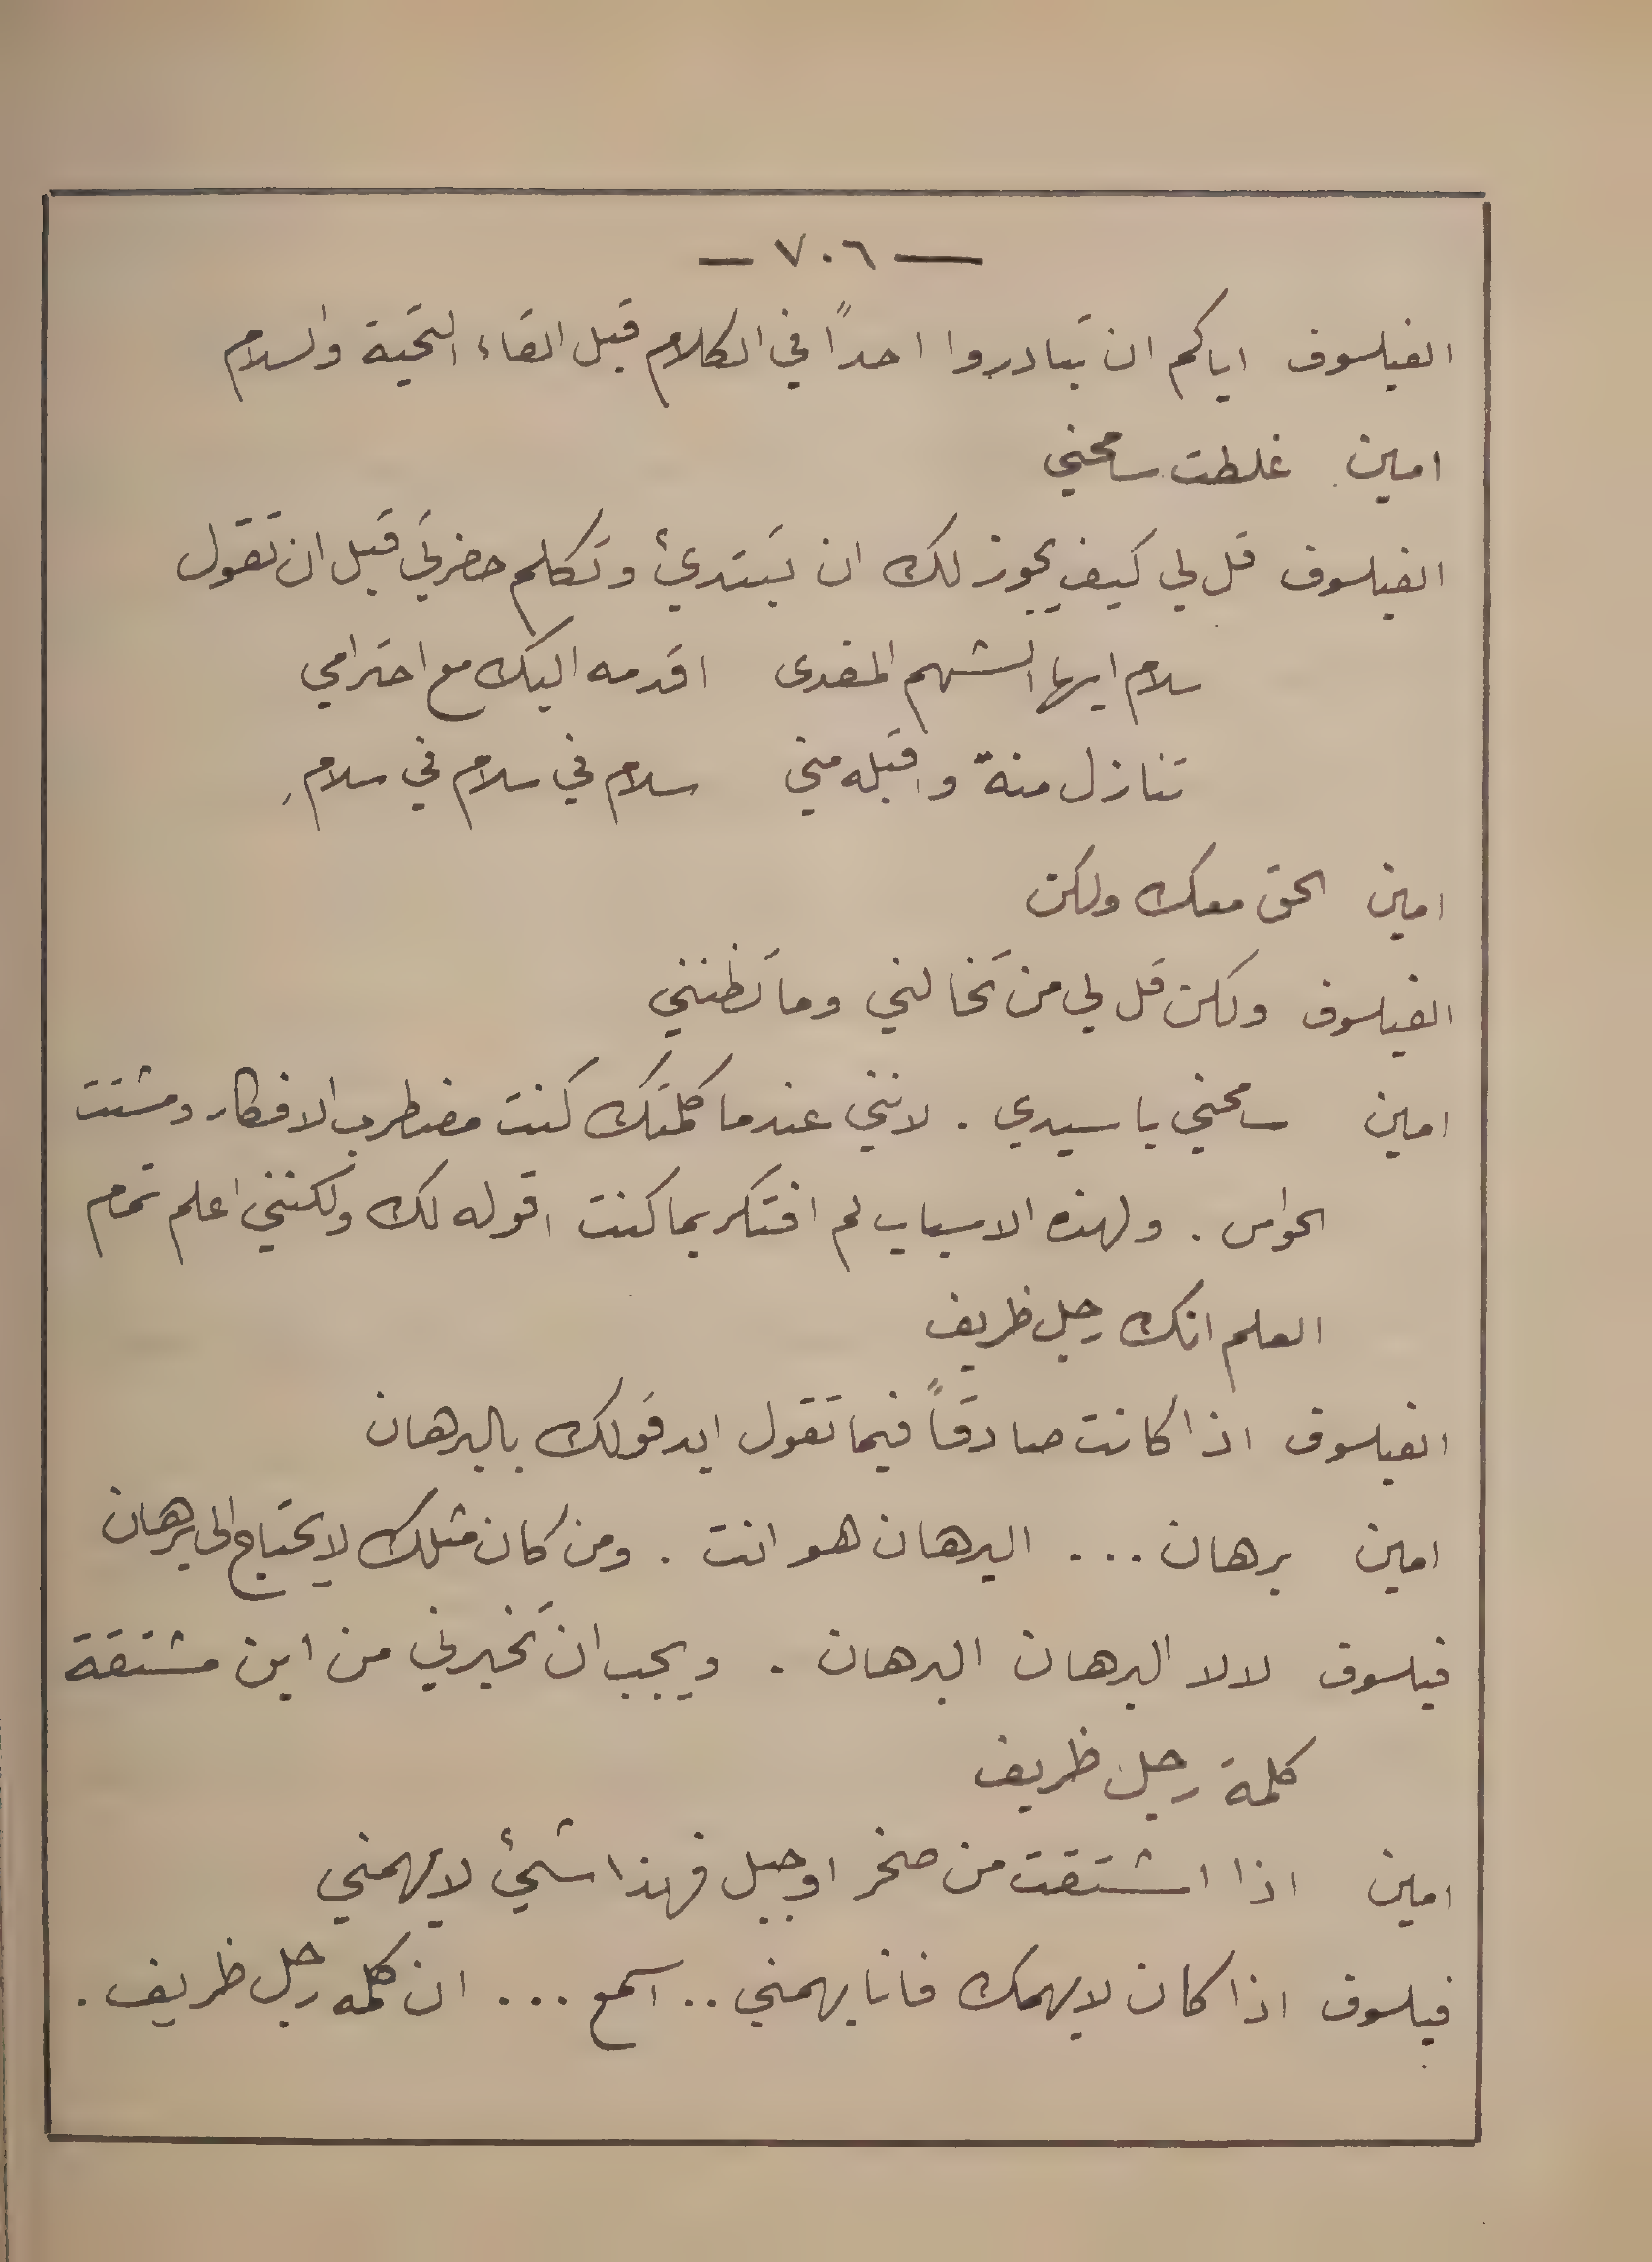 — ٧٠٦ —
الفيلسوف اياكم ان تبادروا احداً في الكلام قبل القاء التحية والسلام
امين غلطت سامحني
الفيلسوف قل لي كيف يجوز لك ان تبتدئ وتكلم حضرتي قبل ان تقول
سلام ايها الشهم المفدى اقدمه اليك مع احترامي
تنازل منة واقبله مني سلام في سلام في سلامِ
امين الحق معك ولكن
الفيلسوف ولكن قل لي من تخالني وما تظنني
امين سامحني يا سيدي . لانني عندما كلمتك كنت مضطرب الافكار ومشتت
الحواس . ولهذه الاسباب لم افتكر بما كنت اقوله لك ولكنني اعلم تمام
العلم انك رجل ظريف
الفيلسوف اذا كانت صادقاً فيما تقول ايد قولك بالبرهان
امين برهان ... البرهان هو انت . ومن كان مثلك لا يحتاج الى برهان
فيلسوف لا لا البرهان البرهان . ويجب ان تخبرني من اين مشتقة
كلمة رجل ظريف
امين اذا اشتقت من صخر او جبل فهذا شئ لا يهمني
فيلسوف اذا كان لا يهمك فانا يهمني .. اسمع ... ان كلمه رجل ظريف .